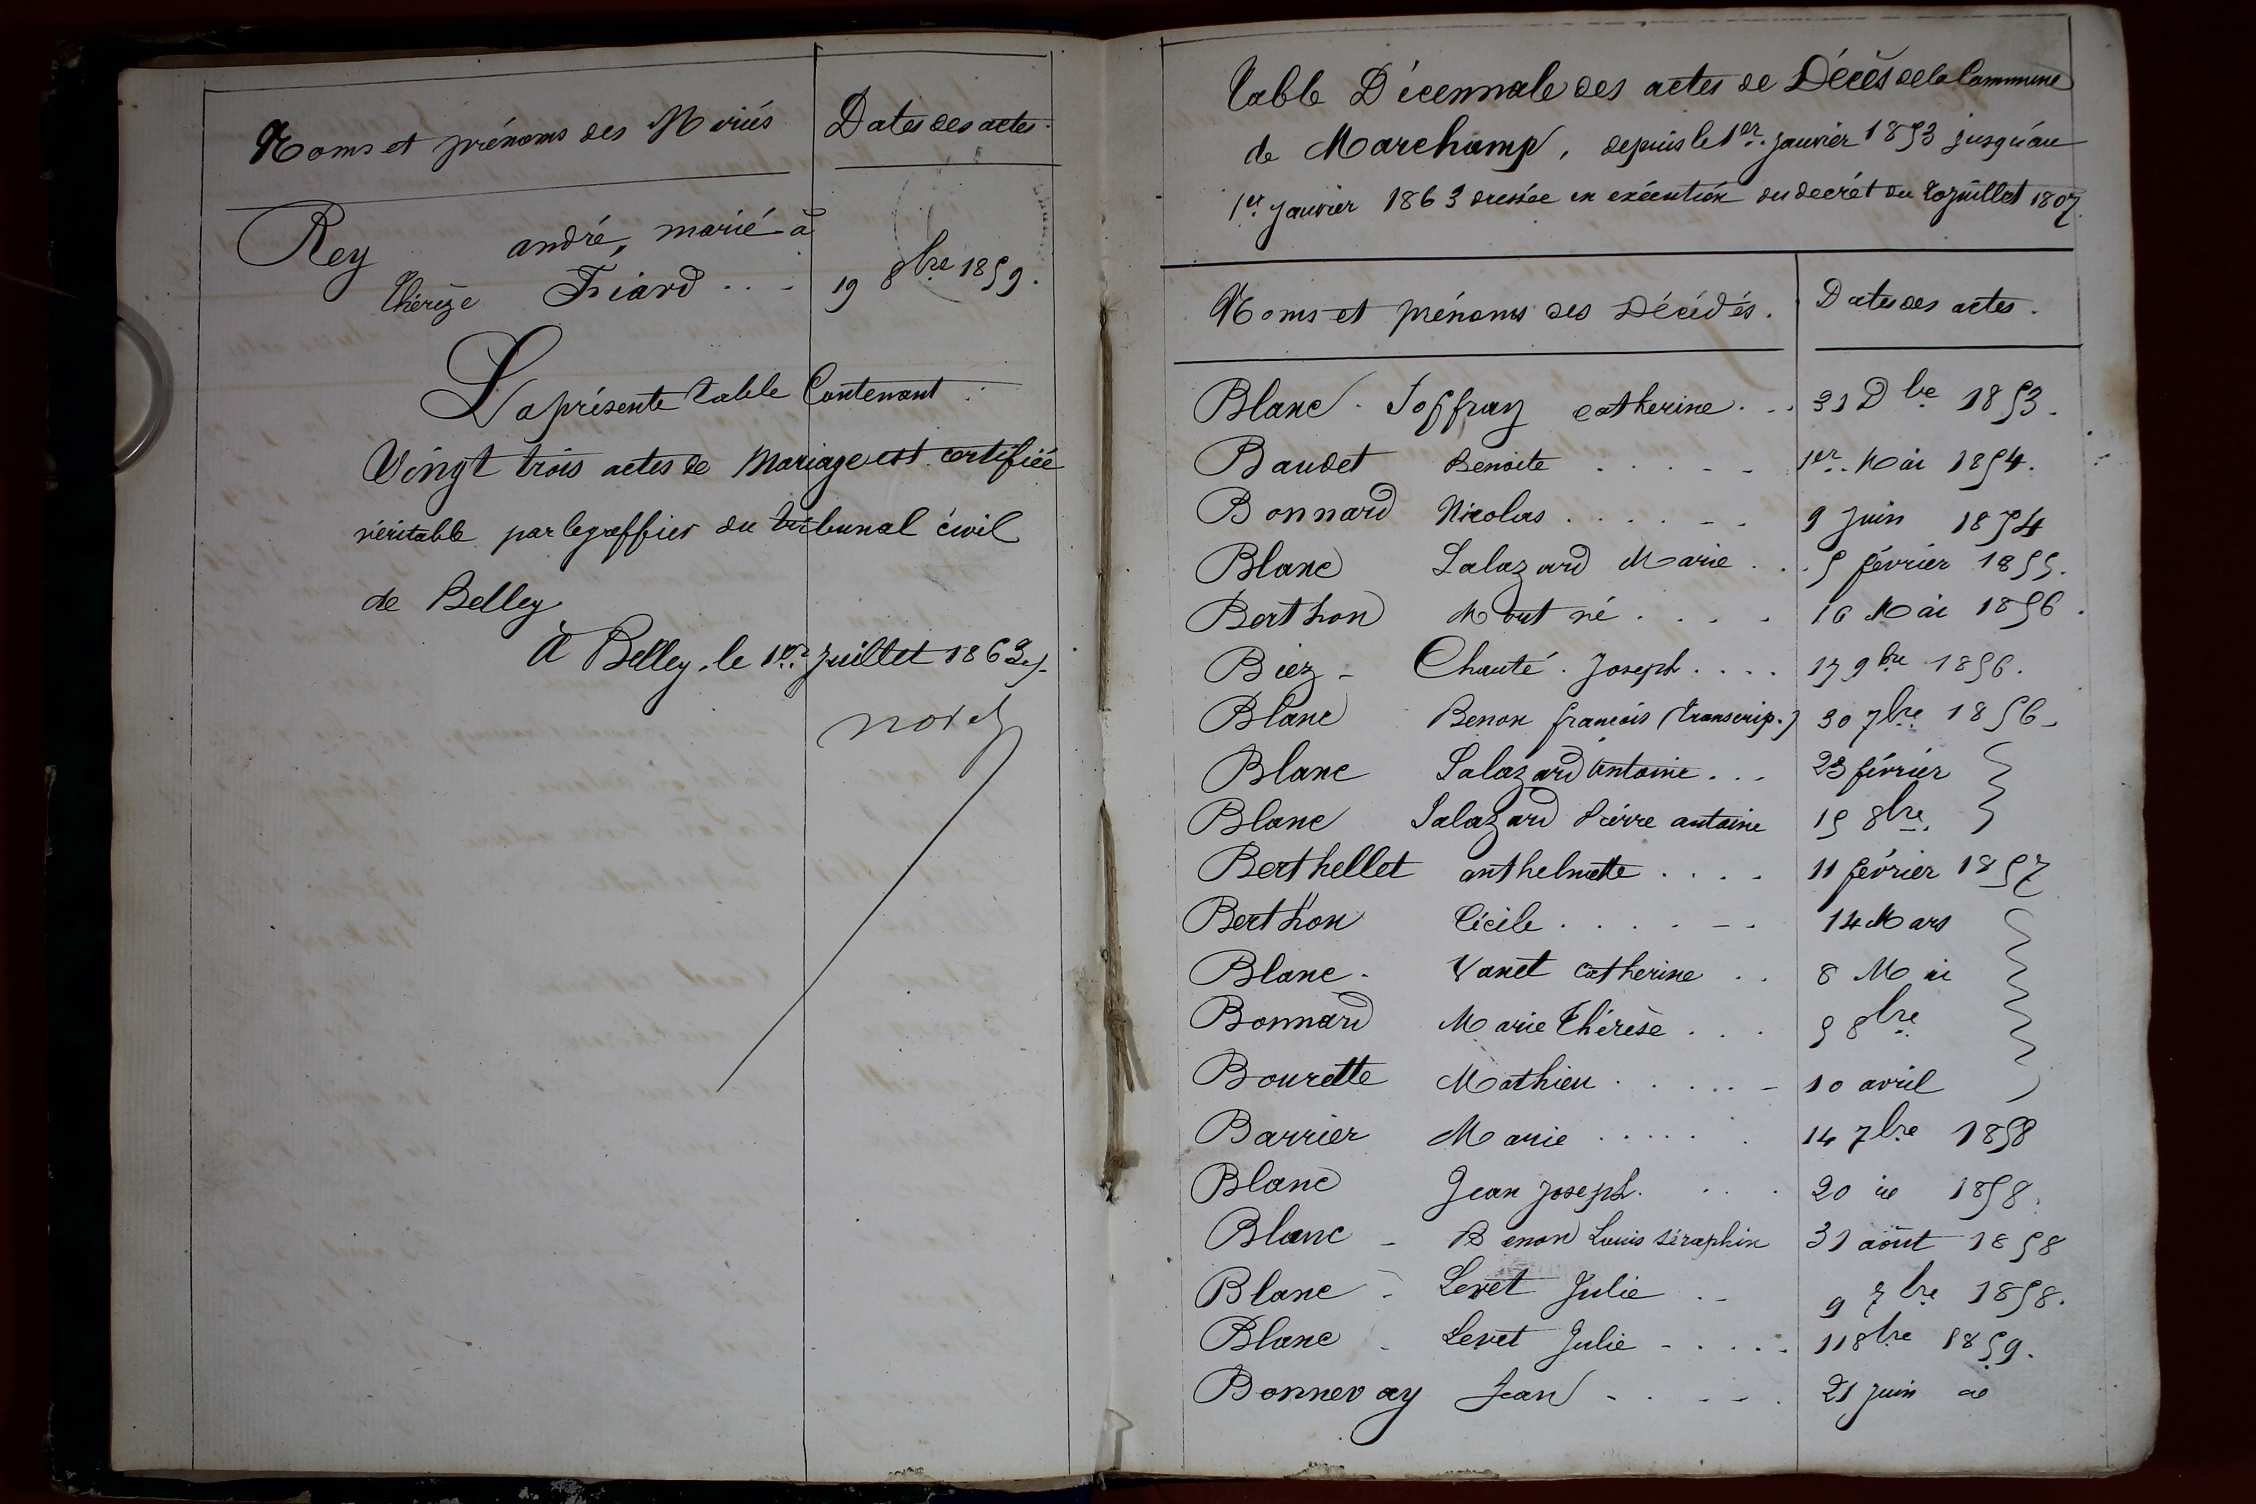 Noms et prénoms des Mariés
Dates des actes.
Rey andré, marié à
Thérèze Fiard . . - 19 8bre 1859.
La présente table Contenant :
Vingt trois actes de Mariage est certifiée
véritable par le greffier du tribunal civil
de Belley
à Belley, le 1er Juillet 1863
Table Décennale des actes de Décès de la Commune
de Marchamp, depuis le 1er janvier 1853 jusqu'au
1er janvier 1863 dressée en exécution du decrét du 20 juillet 1807.
Noms et prénoms des Décédés.
Dates des actes.
Blanc - Joffray catherine . . . 31 Dbre 1853.
Baudet Benoite . . . . - - 1er Mai 1854.
Bonnard Nicolas . . . . - - 9 juin 1854
Blanc Salazard Marie . . . 5 février 1855.
Berthon Mort né . . . . 16 Mai 1856.
Biez - Chanté. Joseph . . . . 17 9bre 1856.
Blanc Benon françois (transcrip.) 30 7bre 1856 -
Blanc Salazard Antoine . . . 23 février
Blanc Salazard Pierre antoine 15 8bre
Berthellet anthelmette . . . . 11 février 1857
Berthon Cécile . . . . - - . 14 Mars
Blanc - Vanet Catherine . . 8 Mai
Bonnard Marie Thérèse . . . 5 8bre
Bourette Mathieu . . . . . - 10 avril
Barrier Marie . . . . . . 14 7bre 1858
Blanc Jean Joseph. . . . 20 id 1858.
Blanc - Benon Louis Séraphin 31 août 1858
Blanc - Levet Julie . - 9 7bre 1858.
Blanc - Levet Julie - . . . . 11 8bre 1859.
Bonnevay Jean - . . - - . 21 juin id